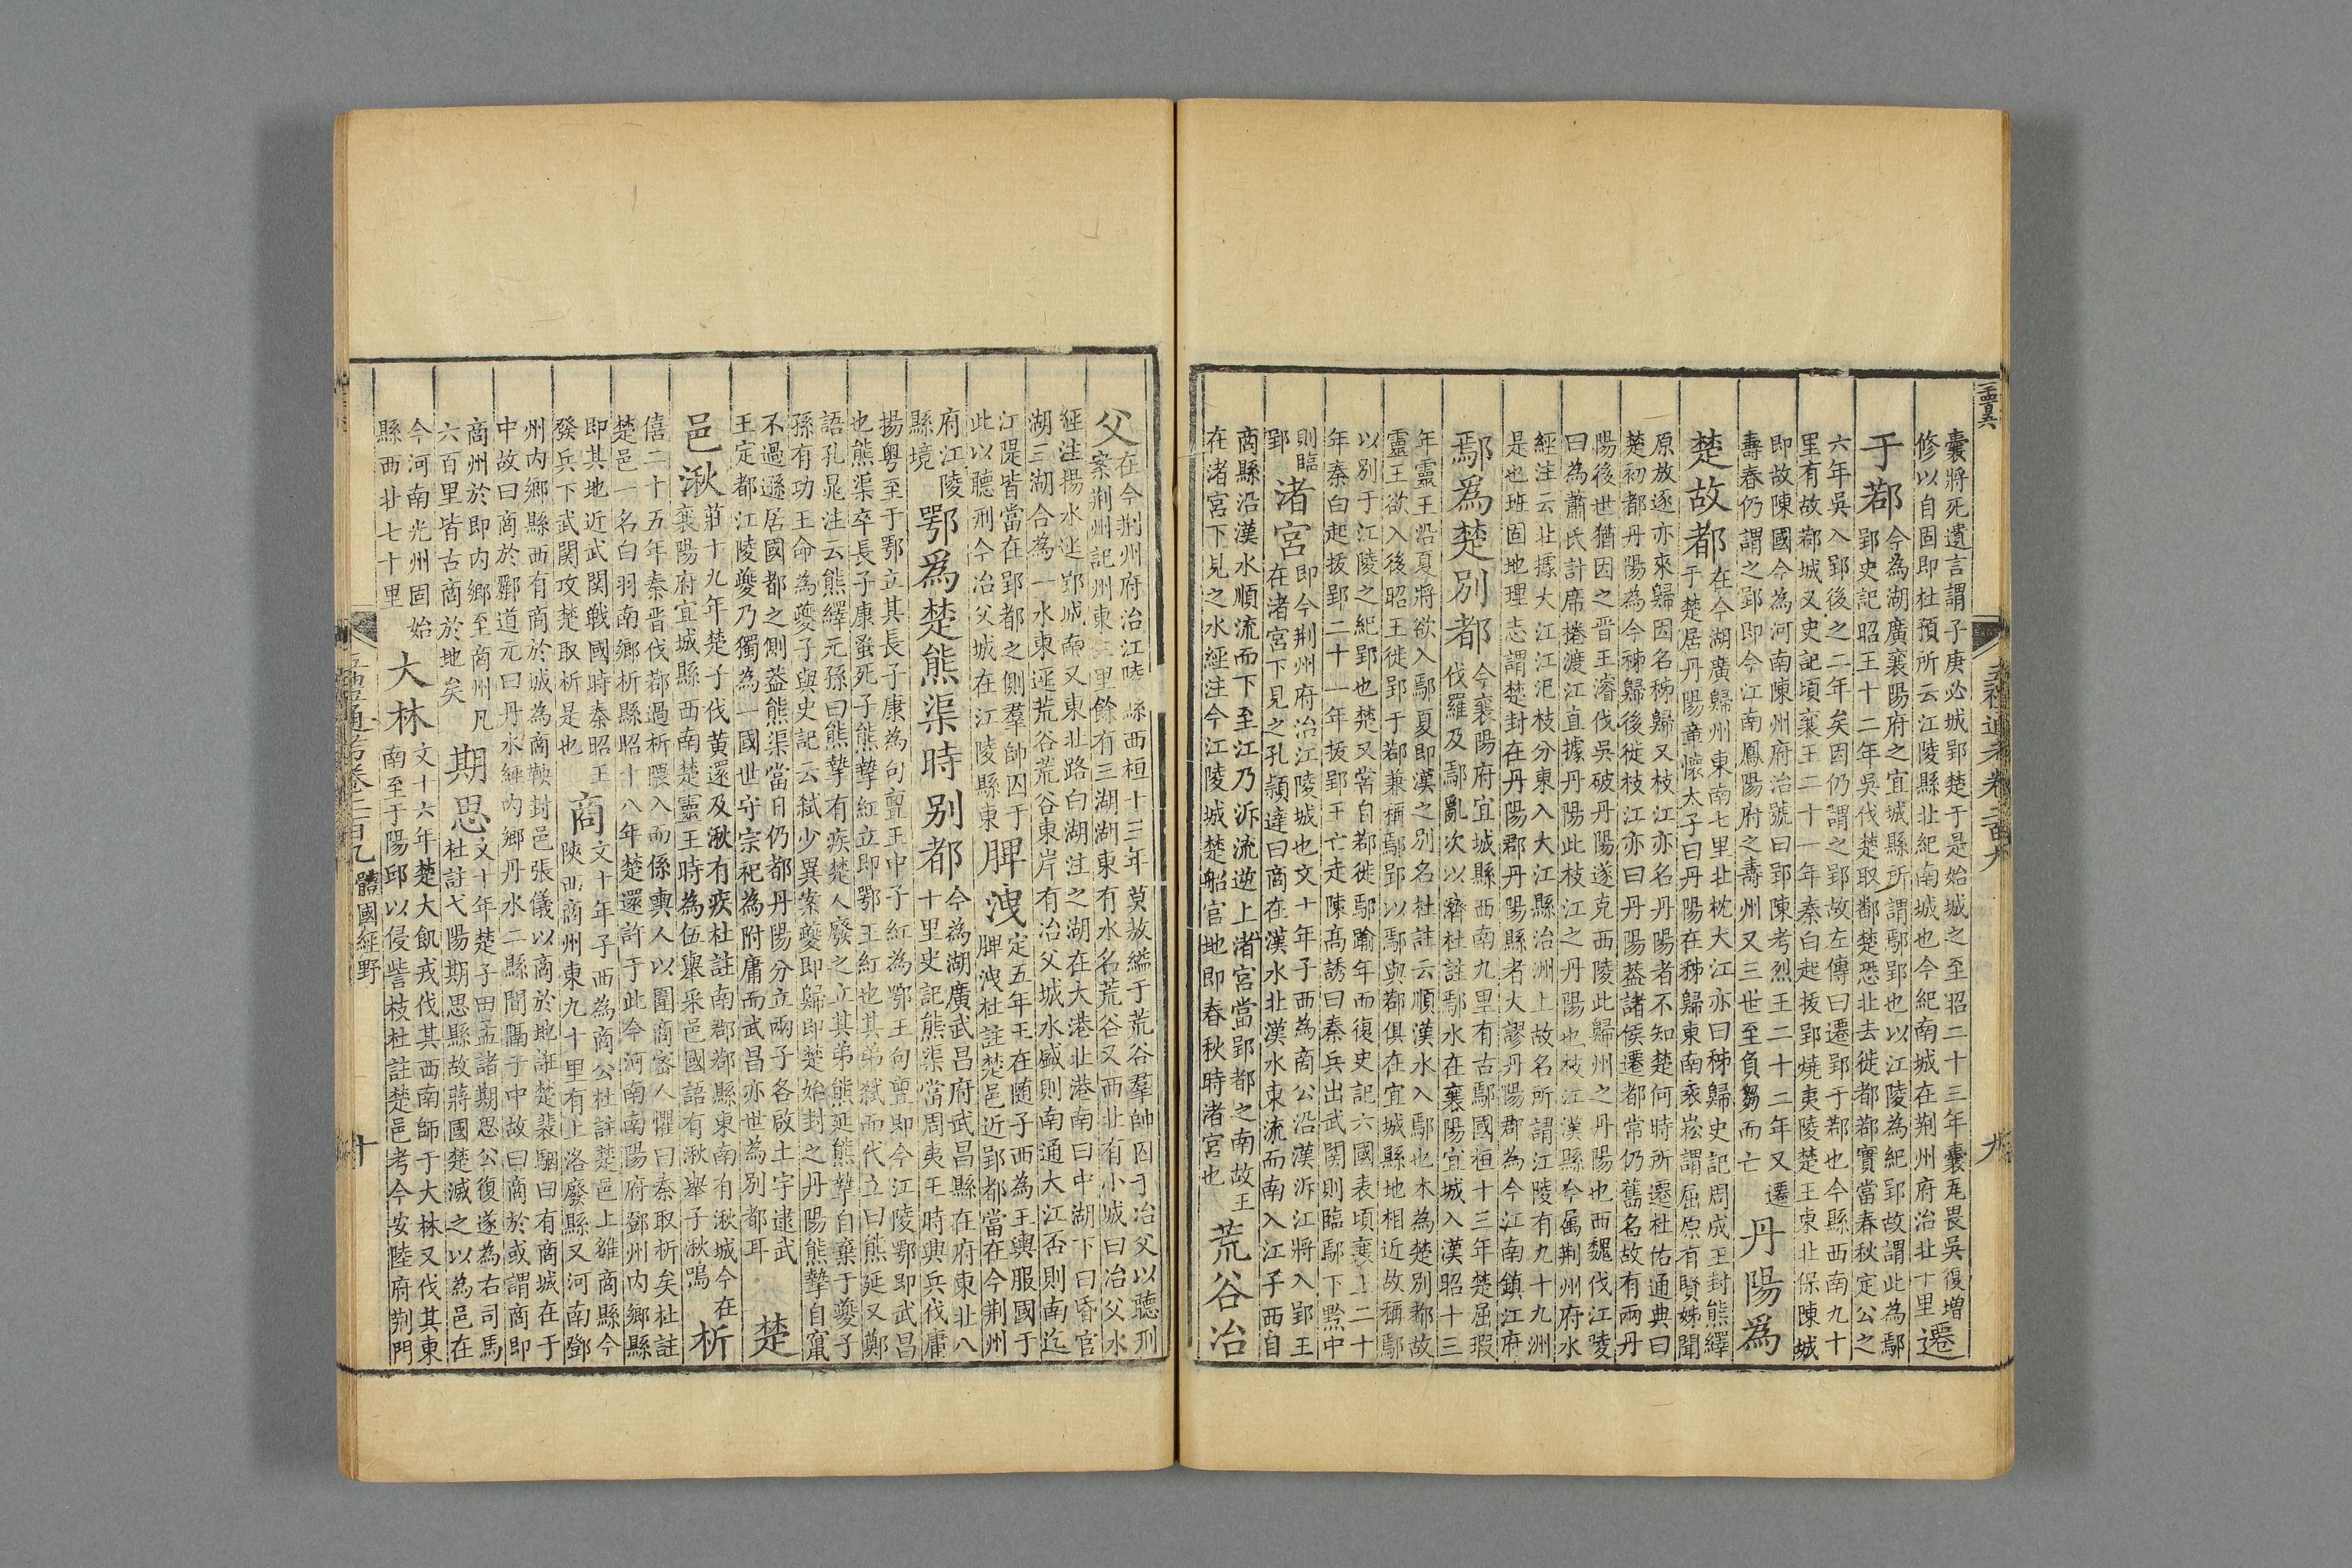 囊將死遺言謂子庚必城郢楚于是始城之至昭二十三年囊瓦畏吳復增
修以自固即杜預所云江陵縣北紀南城也今紀南城在荆州府治北十里
遷
于鄀
今為湖廣襄陽府之宜城縣所謂鄢郢也以江陵為紀郢故謂此為鄢
郢史記昭王十二年吳伐楚取鄱楚恐北去徙都鄀實當春秋定公之
六年吳入郢後之二年矣因仍謂之郢故左傳曰遷郢于鄀也今縣西南九十
里有故鄀城又史記頃襄王二十一年秦白起拔郢燒夷陵楚王東北保陳城
即故陳國今為河南陳州府治號曰郢陳考烈王二十二年又遷
壽春仍謂之郢即今江南鳳陽府之壽州又三世至負芻而亡
丹陽為
楚故都
在今湖廣歸州東南七里北枕大江亦曰秭歸史記周成王封熊繹
于楚居丹陽章懷太子曰丹陽在秭歸東南袁崧謂屈原有賢姊聞
原放逐亦來歸因名秭歸又枝江亦名丹陽者不知楚何時所遷杜佑通典曰
楚初都丹陽為今秭歸後徙枝江亦曰丹陽蓋諸侯遷都常仍舊名故有兩丹
陽後世猶因之晋王濬伐吳破丹陽遂克西陵此歸州之丹陽也西魏伐江陵
曰為蕭氏計席捲渡江直據丹陽此枝江之丹陽也枝江漢縣今属荆州府水
經注云北據大江江汜枝分東入大江縣治洲上故名所謂江陵有九十九洲
是也班固地理志謂楚封在丹陽郡丹陽縣者大謬丹陽郡為今江南鎮江府
鄢為楚別都
今襄陽府宜城縣西南九里有古鄢國桓十三年楚屈瑕
伐羅及鄢亂次以濟杜註鄢水在襄陽宜城入漢昭十三
年靈王沿夏將欲入鄢夏即漢之別名杜註云順漢水入鄢也本為楚別都故
靈王欲入後昭王徙郢于鄀兼稱鄢郢以鄢與鄀俱在宜城縣地相近故稱鄢
以別于江陵之紀郢也楚又嘗自鄀徙鄢踰年而復史記六國表頃襄王二十
年秦白起拔郢二十一年拔郢王亡走陳高誘曰秦兵出武関則臨鄢下黔中
則臨
郢
渚宮
即今荆州府治江陵城也文十年子西為商公沿漢泝江將入郢王
在渚宮下見之孔頴達曰商在漢水北漢水東流而南入江子西自
商縣沿漢水順流而下至江乃泝流逆上渚宮當郢都之南故王
在渚宮下見之水經注今江陵城楚船官地即春秋時渚宮也
荒谷冶
五禮通考卷二百九
九
父
在今荆州府治江陵縣西桓十三年莫敖縊于荒谷羣帥囚于冶父以聽刑
案荆州記州東三里餘有三湖湖東有水名荒谷又西北有小城曰冶父水
經注揚水逕郢城南又東北路白湖注之湖在大港北港南曰中湖下曰昏官
湖三湖合為一水東逕荒谷荒谷東岸有冶父城水盛則南通大江否則南迄
江隄皆當在郢都之側羣帥囚于
此以聽刑今冶父城在江陵縣東
脾洩
定五年王在隨子西為王輿服國于
脾洩杜註楚邑近郢都當在今荆州
府江陵
縣境
鄂為楚熊渠時别都
今為湖廣武昌府武昌縣在府東北八
十里史記熊渠當周夷王時興兵伐庸
揚粤至于鄂立其長子康為句亶王中子紅為鄂王句亶即今江陵鄂即武昌
也熊渠卒長子康蚤死子熊摯紅立即鄂王紅也其弟弒而代立曰熊延又鄭
語孔晁注云熊繹元孫曰熊摯有疾楚人廢之立其弟熊延熊摯自棄于夔子
孫有功王命為夔子與史記云弒少異案夔即歸即楚始封之丹陽熊摯自竄
不過遜居國都之側蓋熊渠當日仍都丹陽分立兩子各啟土宇逮武
王定都江陵夔乃獨為一國世守宗祀為附庸而武昌亦世為别都耳
楚
邑湫
莊十九年楚子伐黃還及湫有疾杜註南郡鄀縣東南有湫城今在
襄陽府宜城縣西南楚靈王時為伍舉采邑國語有湫舉子湫鳴
析
僖二十五年秦晋伐鄀過析隈入而係輿人以圍商密人懼曰秦取析矣杜註
楚邑一名白羽南鄉析縣昭十八年楚遷許于此今河南南陽府鄧州内鄉縣
即其地近武関戰國時秦昭王
發兵下武関攻楚取析是也
商
文十年子西為商公杜註楚邑上雒商縣今
陝西商州東九十里有上洛廢縣又河南鄧
州内鄉縣西有商於城為商鞅封邑張儀以商於地誑楚裴駰曰有商城在于
中故曰商於酈道元曰丹水經内鄉丹水二縣間隔于中故曰商於或謂商即
商州於即内鄉至商州凡
六百里皆古商於地矣
期思
文十年楚子田孟諸期思公復遂為右司馬
杜註弋陽期思縣故蔣國楚滅之以為邑在
今河南光州固始
縣西北七十里
大林
文十六年楚大飢戎伐其西南師于大林又伐其東
南至于陽邱以侵訾枝杜註楚邑考今安陸府荆門
五禮通考卷二百九 體國經野
十